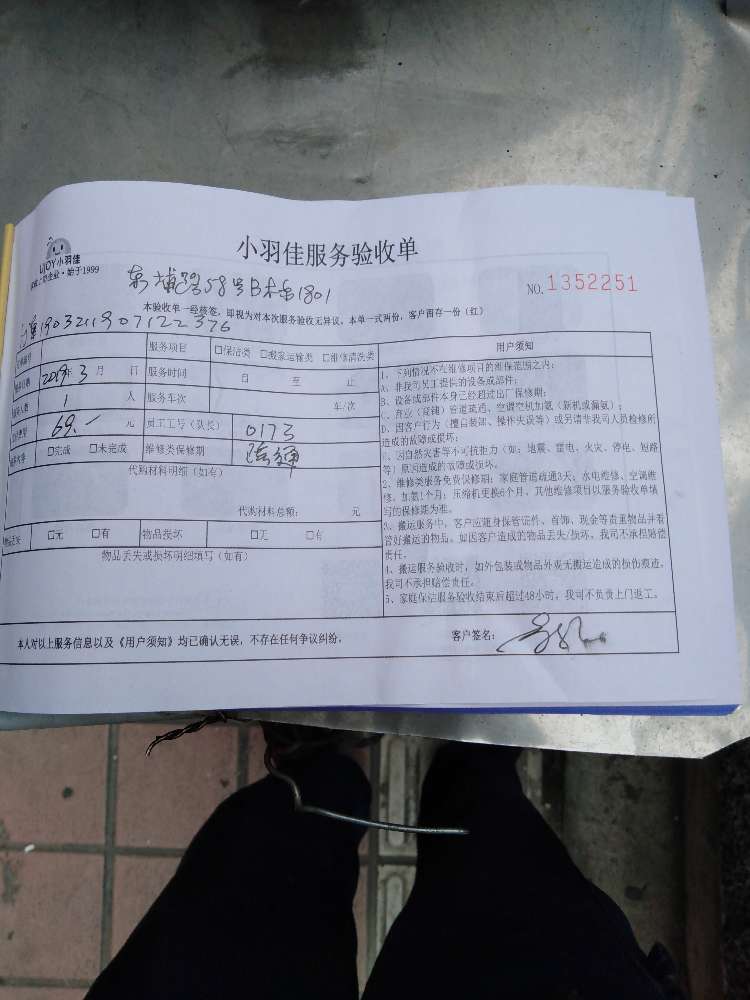 UJOY小羽佳
始于1999
小羽佳服务验收单
58号 1801
NO.1352251
本验收单一经核签，即视为对本次服务验收无异议。本单一式两份，客户留存一份（红）
1903211907122376
服务项目 □保洁类 □搬家运输类 □维修清洗类
2019年3月 日 服务时间 自 至 止
1 人 服务车次 车/次
69.- 元 员工工号（队长） 0173
□完成 □未完成 维修类保修期
代购材料明细（如有）
代购材料总额： 元
□无 □有 物品损坏 □无 □有
物品丢失或损坏明细填写（如有）
用户须知
1、下列情况不在维修项目的维保范围之内：
A、非我司员工提供的设备或部件；
B、设备或部件本身已经超过出厂保修期；
C、商业（商铺）管道疏通、空调空机加氟（新机或漏氟）；
D、因客户行为（擅自装卸、操作失误等）或另请非我司人员检修所
造成的故障或损坏；
E、因自然灾害等不可抗拒力（如：地震、雷电、火灾、停电、短路
等）原因造成的故障或损坏。
2、维修类服务免费保修期：家庭管道疏通3天；水电维修、空调维
修、加氟1个月；压缩机更换6个月、其他维修项目以服务验收单填
写的保修期为准。
3、搬运服务中，客户应随身保管证件、首饰、现金等贵重物品并看
管好搬运的物品。如因客户造成的物品丢失/损坏，我司不承担赔偿
责任。
4、搬运服务验收时，如外包装或物品外观无搬运造成的损伤痕迹，
我司不承担赔偿责任。
5、家庭保洁服务验收结束后超过48小时，我司不负责上门返工。
本人对以上服务信息以及《用户须知》均已确认无误，不存在任何争议纠纷。 客户签名：